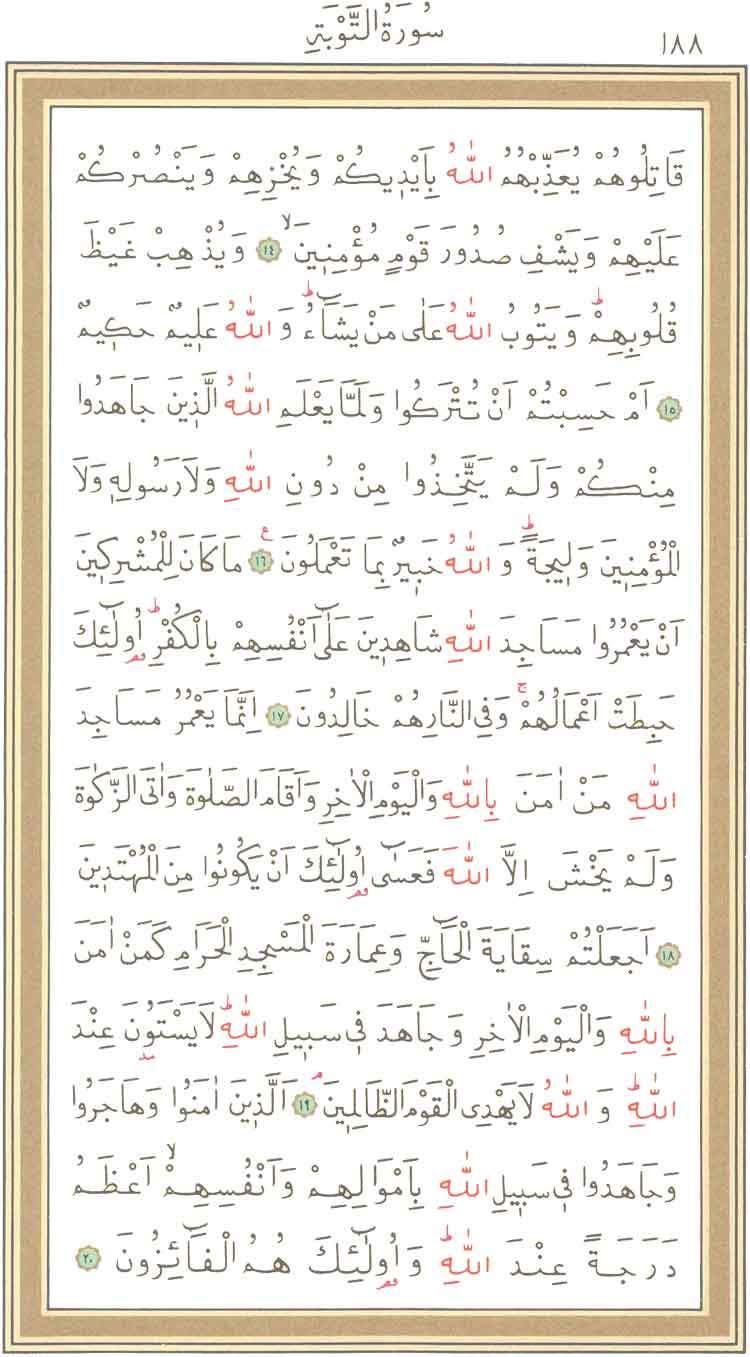 سُورَةُ التَّوْبَةِ
١٨٨
قَاتِلُوهُمْ يُعَذِّبْهُمُ اللّٰهُ بِاَيْدٖيكُمْ وَيُخْزِهِمْ وَيَنْصُرْكُمْ
عَلَيْهِمْ وَيَشْفِ صُدُورَ قَوْمٍ مُؤْمِنٖينَۙ ﴿١٤﴾ وَيُذْهِبْ غَيْظَ
قُلُوبِهِمْؕ وَيَتُوبُ اللّٰهُ عَلٰى مَنْ يَشَٓاءُؕ وَاللّٰهُ عَلٖيمٌ حَكٖيمٌ
﴿١٥﴾ اَمْ حَسِبْتُمْ اَنْ تُتْرَكُوا وَلَمَّا يَعْلَمِ اللّٰهُ الَّذٖينَ جَاهَدُوا
مِنْكُمْ وَلَمْ يَتَّخِذُوا مِنْ دُونِ اللّٰهِ وَلَا رَسُولِهٖ وَلَا
الْمُؤْمِنٖينَ وَلٖيجَةًؕ وَاللّٰهُ خَبٖيرٌ بِمَا تَعْمَلُونَ ﴿١٦﴾ ع مَا كَانَ لِلْمُشْرِكٖينَ
اَنْ يَعْمُرُوا مَسَاجِدَ اللّٰهِ شَاهِدٖينَ عَلٰٓى اَنْفُسِهِمْ بِالْكُفْرِؕ اُو۬لٰٓئِكَ
حَبِطَتْ اَعْمَالُهُمْۚ وَفِي النَّارِ هُمْ خَالِدُونَ ﴿١٧﴾ اِنَّمَا يَعْمُرُ مَسَاجِدَ
اللّٰهِ مَنْ اٰمَنَ بِاللّٰهِ وَالْيَوْمِ الْاٰخِرِ وَاَقَامَ الصَّلٰوةَ وَاٰتَى الزَّكٰوةَ
وَلَمْ يَخْشَ اِلَّا اللّٰهَ فَعَسٰٓى اُو۬لٰٓئِكَ اَنْ يَكُونُوا مِنَ الْمُهْتَدٖينَ
﴿١٨﴾ اَجَعَلْتُمْ سِقَايَةَ الْحَٓاجِّ وَعِمَارَةَ الْمَسْجِدِ الْحَرَامِ كَمَنْ اٰمَنَ
بِاللّٰهِ وَالْيَوْمِ الْاٰخِرِ وَجَاهَدَ فٖي سَبٖيلِ اللّٰهِؕ لَا يَسْتَوُ۫نَ عِنْدَ
اللّٰهِؕ وَاللّٰهُ لَا يَهْدِي الْقَوْمَ الظَّالِمٖينَۘ ﴿١٩﴾ اَلَّذٖينَ اٰمَنُوا وَهَاجَرُوا
وَجَاهَدُوا فٖي سَبٖيلِ اللّٰهِ بِاَمْوَالِهِمْ وَاَنْفُسِهِمْۙ اَعْظَمُ
دَرَجَةً عِنْدَ اللّٰهِؕ وَاُو۬لٰٓئِكَ هُمُ الْفَٓائِزُونَ ﴿٢٠﴾